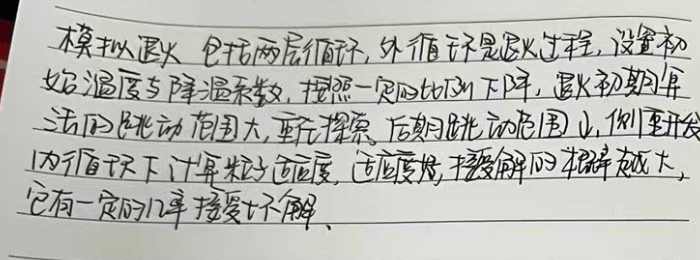 模拟退火 包括两层循环,外循环是退火过程,设置初
始温度与降温系数,按照一定的比例下降,退火初期算
法的跳动范围大,重在探索,后期跳动范围小,侧重开发
内循环下计算粒子适应度,适应度好,接受解的概率越大,
它有一定的几率接受坏解、